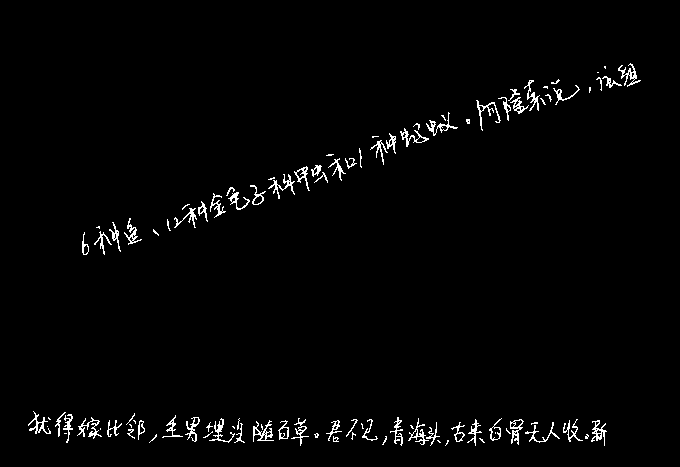 6种鱼、12种金龟子科甲虫和21种蚂蚁。阿隆索说，该组
犹得嫁比邻，生男埋没随百草。君不见，青海头，古来白骨无人收。新